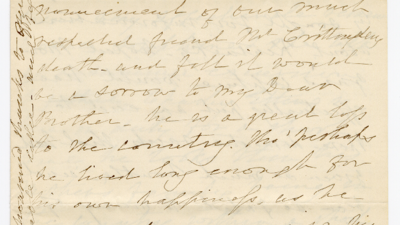 nouncement of our much
respected friend Mr Crittendens
death - and felt it would
be a sorrow to my Dear
Mother. he is a great loss
to the country. tho' perhaps
he lived long enough for
his own happiness, as he